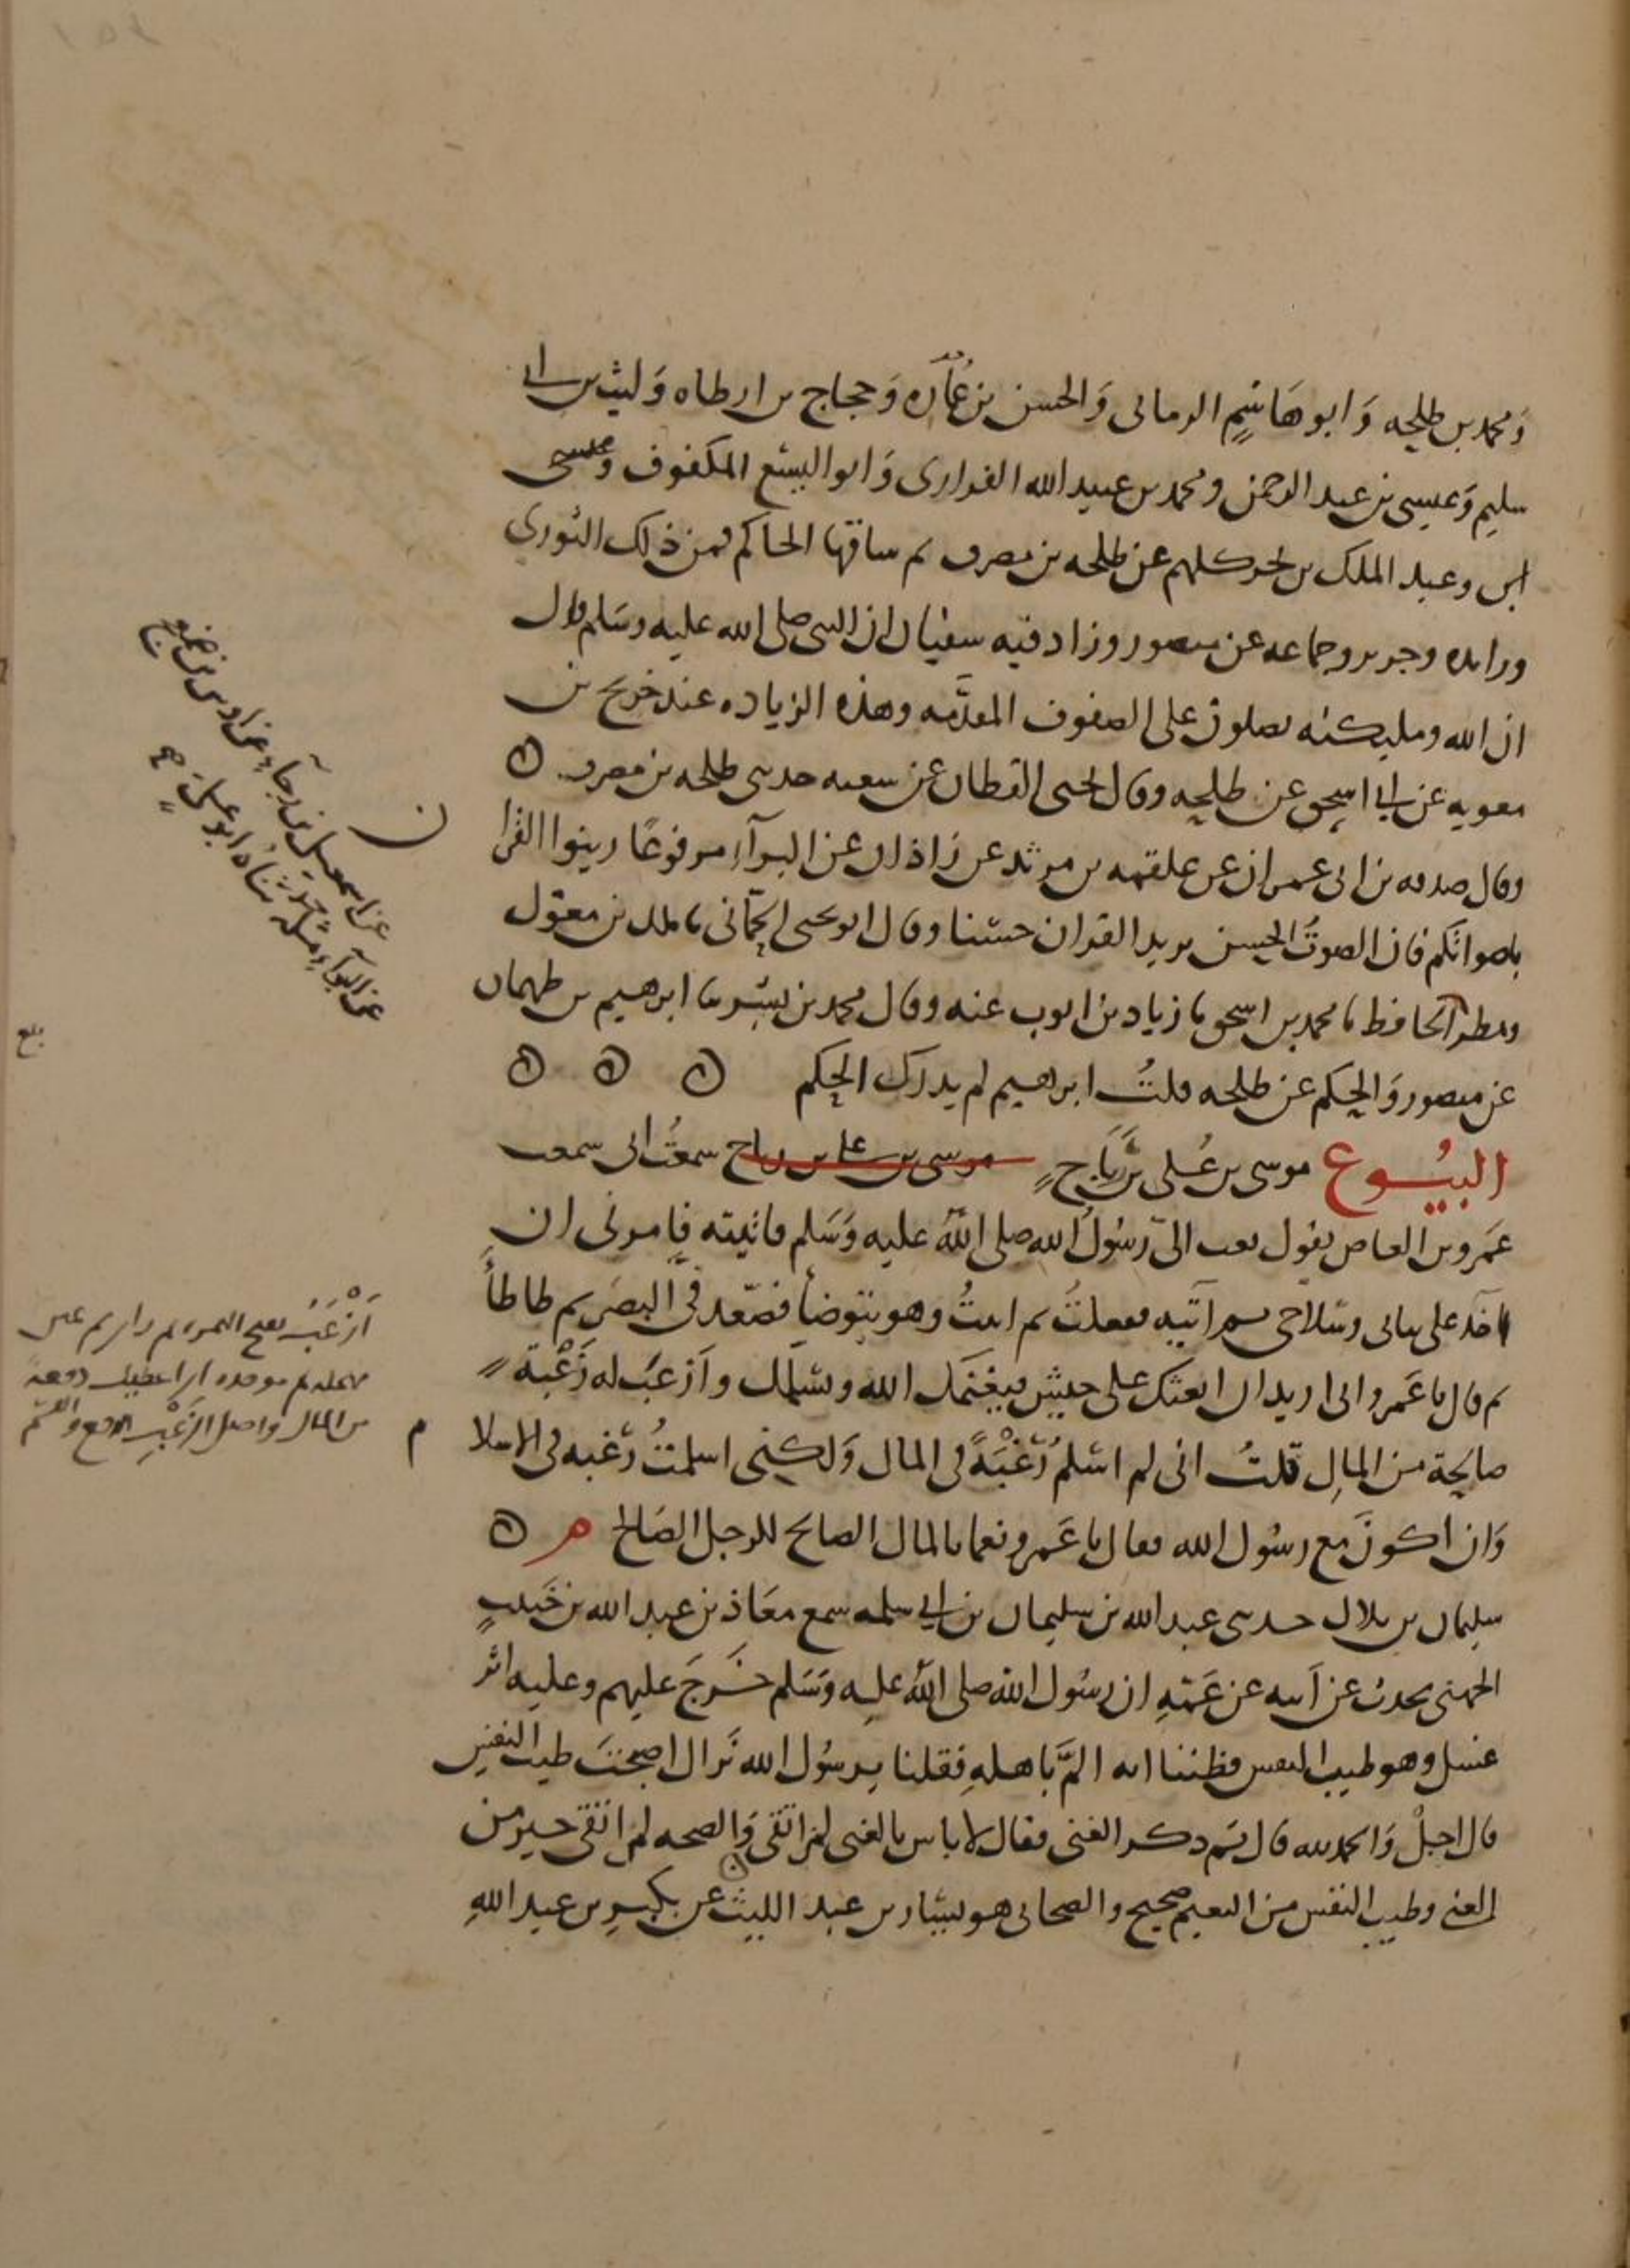 ومحمد بن طلحه وَابو هَاشمٍ الرمانى وَالحسن بن عُمَاره وَحجاج بن ارطاه وَليث بن ابى
سليم وَعيسى بن عبد الرحمن ومحمد بن عبيد الله الفزارى وَابو اليسع المكفوف
ابن وعبد الملك بن ابحر كلهم عن طلحه بن مصرف ثم ساقها الحاكم فمن ذلك الثورى
وزايده وجرير وجماعه عن منصور وزاد فيه سفيان ان النبى صلى الله عليه وسَلم قال
ان الله ومليكته يصلون على الصفوف المقدَّمه وهذه الزياده عند خديج بن
معويه عن ابى اسحق عن طلحه وقال يحيى القطان عن شعبه حدثنى طلحه بن مصرف
وقال صدقه بن ابى عمران عن علقمه بن مرثد عن زَاذان عن البرآءِ مرفوعًا زينوا القرا
باصواتكم فان الصوتُ الحسن يزيد القران حسنا وقال ابو يحيى الحِمّانى ما ملك بن مغول
ومطر الحافظ نا محمد بن اسحق نا زياد بن ايوب عنه وقال محمد بن بشر نا ابرهيم بن طهمان
عن منصور وَالحكم عن طلحه قلتُ ابرهيم لم يدرك الحكم
البيُوع موسى بن عُلى بن رَبَاحٍ موسى بن على بن رباح سمعتُ ابى سمعت
عَمرو بن العاص يقول بعث الىّ رسُولُ الله صلى اللهُ عليه وَسَلم فاتيته فامرنى ان
اخذ على ثيابى وسَلاحى ثم آتيه ففعلتُ ثم اتيتُ وهو يتوضأ فصَعّد فى البصَر ثم طاطأَ
ثم قال يا عَمرو انى اريد ان ابعثك على جيشٍ فيغنمَك الله ويسَلمك وَازعَب له زَعْبة
صالحة من المالِ قلتُ انى لم اسْلمُ رَغبَةً فى المال وَلكنى اسلمتُ رَغبه فى الاسلا م
وَان أكونَ مع رسُول الله فقال يا عَمرو نعما بالمال الصالح للرجل الصَالح
سليمان بن بلال حدثنى عبد الله بن سليمان بن ابى سلمه سمع معَاذ بن عبد الله بن خُبيبٍ
الجهنى يحدث عن اَبيه عن عَمّهِ ان رسُول الله صلى اللهُ عليه وَسَلم خَرجَ عليهم وعليه اثر
غسل وهو طيب النفس فظننا انه المَّ باهلهِ فقلنا يرسُول الله نَراك اصبحْتَ طيب النفسِ
قال اجلْ وَالحمد لله قال ثم ذكر الغنى فقال لا باس بالغنى لمن اتقى وَالصحه لمن اتقى خير من
الغنى وطيب النفس من النعيم صحيح والصحابى هو يسَار بن عبد الليث عن بكيرِ بن عبد اللهِ
عن اسمعيل بن رجآءِ عن اوس بن ضمعج
عن البرآءِ مثله حدثناه ابو على
بلغ
اَزْعَبُ بفتح الهمزه ثم زاى ثم عين
مهمله ثم موحده اى اعطيك دفعة
من المال واصل الزَعْبِ الدفع والقسم